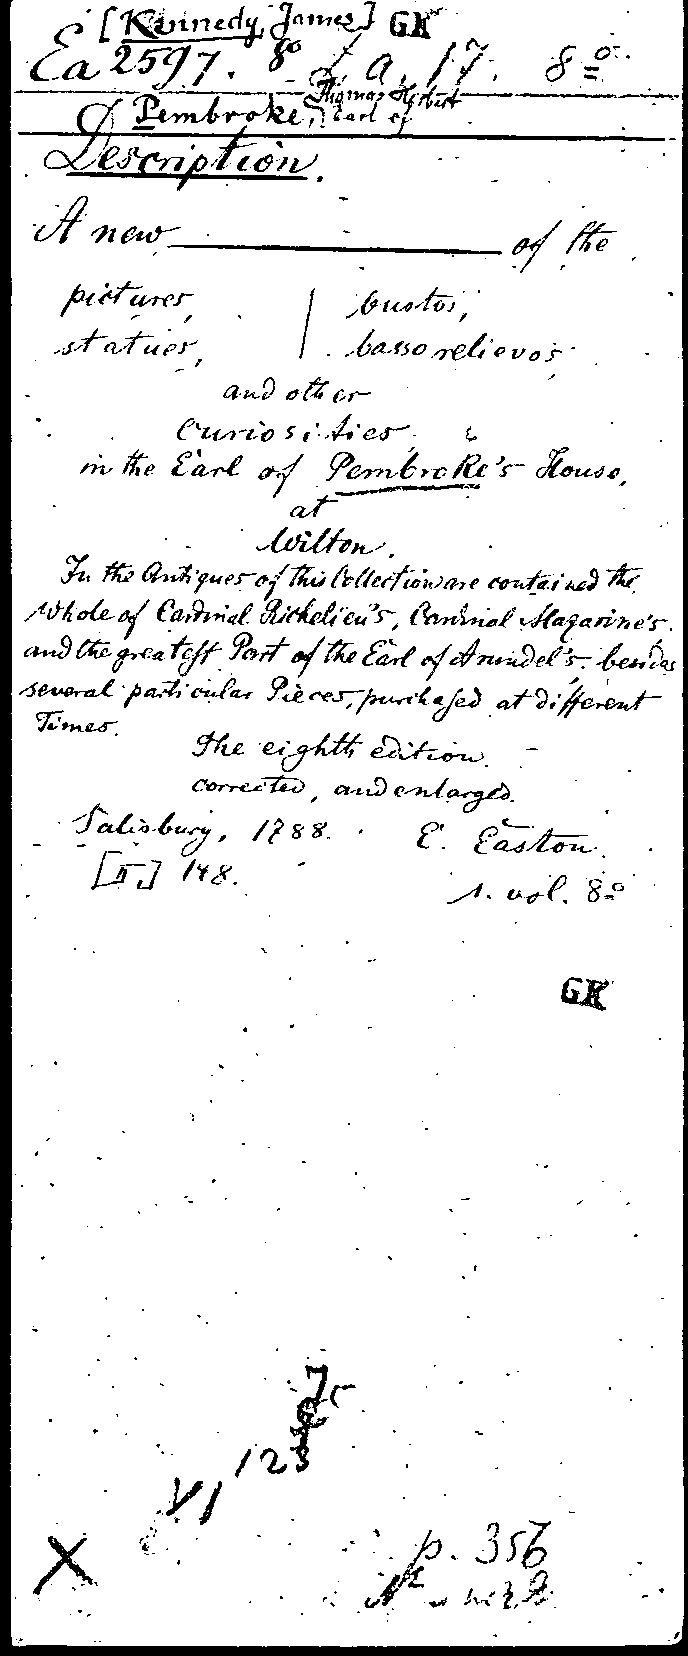 [Kennedy, James] GK
Ea 2597. 8º a. 17. 8º.
Pembroke, Thomas Herbert Earl of
Description.
A new ——— of the
pictures, | bustos,
statues, | basso relievos,
and other
curiosities
in the Earl of Pembroke's House,
at
Wilton.
In the Antiques of this Collection are contained the
Whole of Cardinal Richelieu's, Cardinal Mazarine's.
and the greatest Part of the Earl of Arundel's. besides
several particular Pieces, purchased at different
Times.
The eighth edition.
corrected, and enlarged.
Salisbury, 1788. E. Easton.
[II.] 148. 1. vol. 8º
GK
123
VI
X p. 356